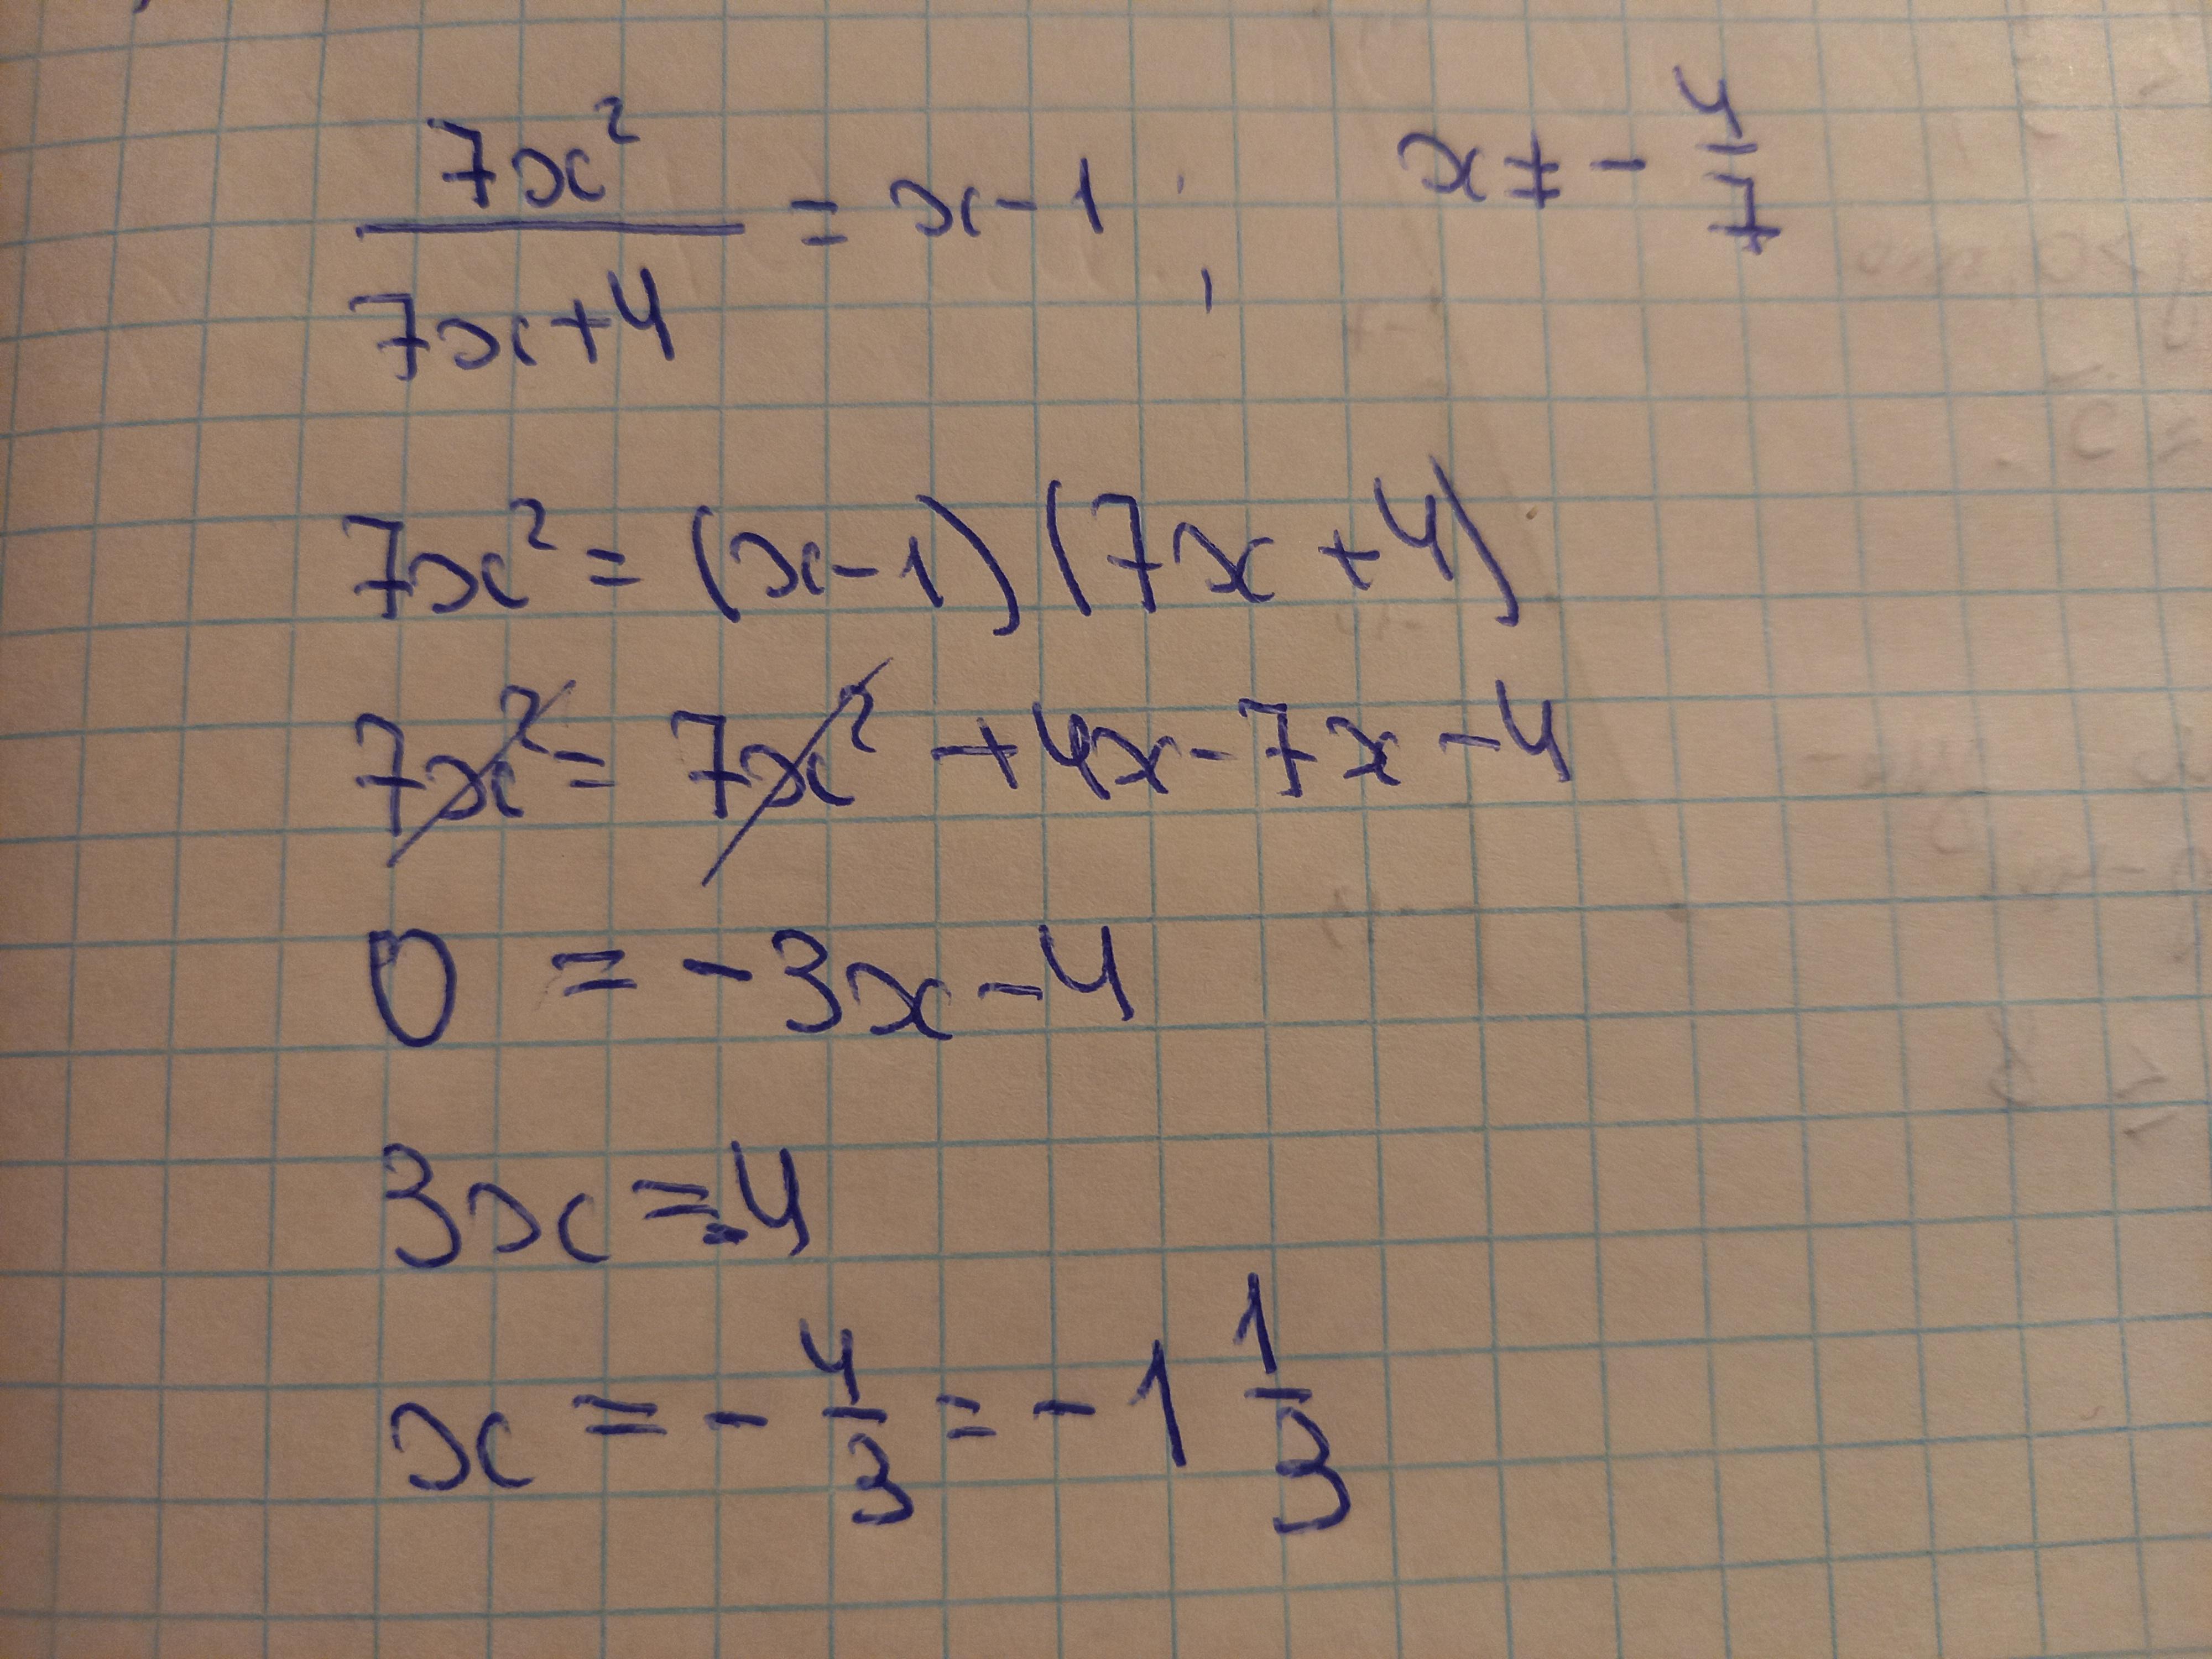 7x²/(7x+4) = x-1 ; x ≠ -4/7
7x² = (x-1)(7x+4)
7x² = 7x² +4x-7x-4
0 = -3x-4
3x = -4
x = -4/3 = -1 1/3